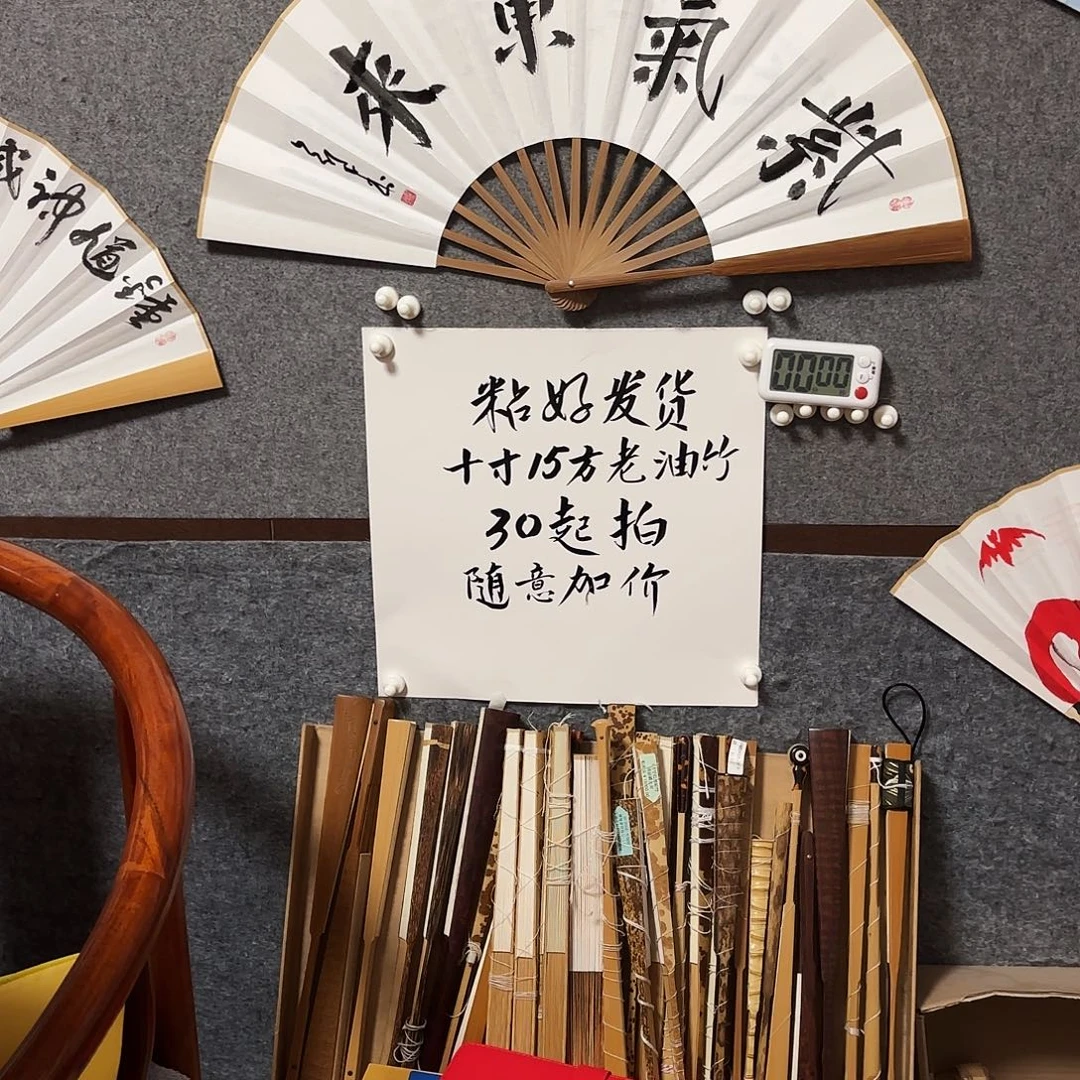 紫氣東來
神道鍾
粘好发货
十寸15方老油竹
30起拍
随意加价
00:00